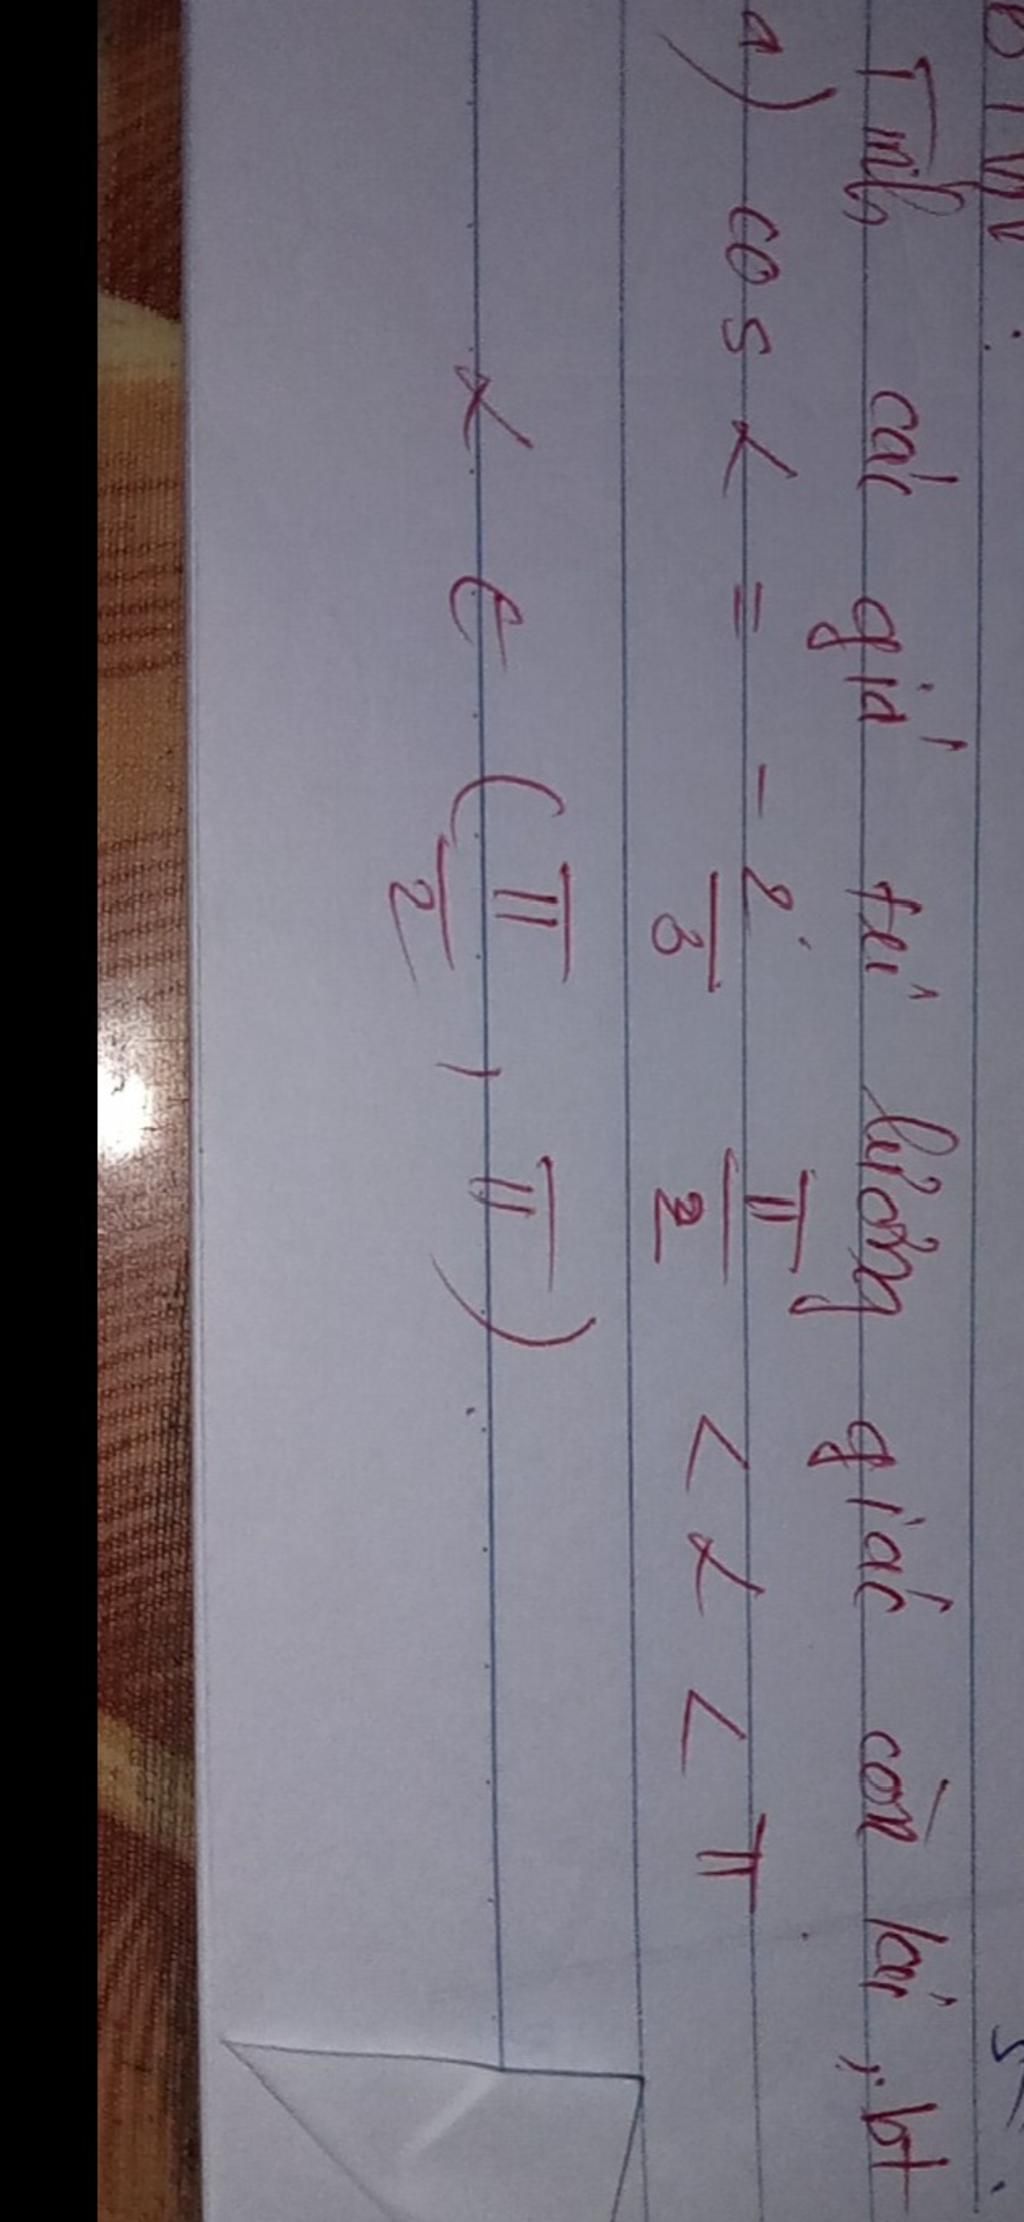 BTVN :
Tính các giá trị lượng giác còn lại, bt
a) cos α = - 2/3 π/2 < α < π
α ∈ (π/2 , π)